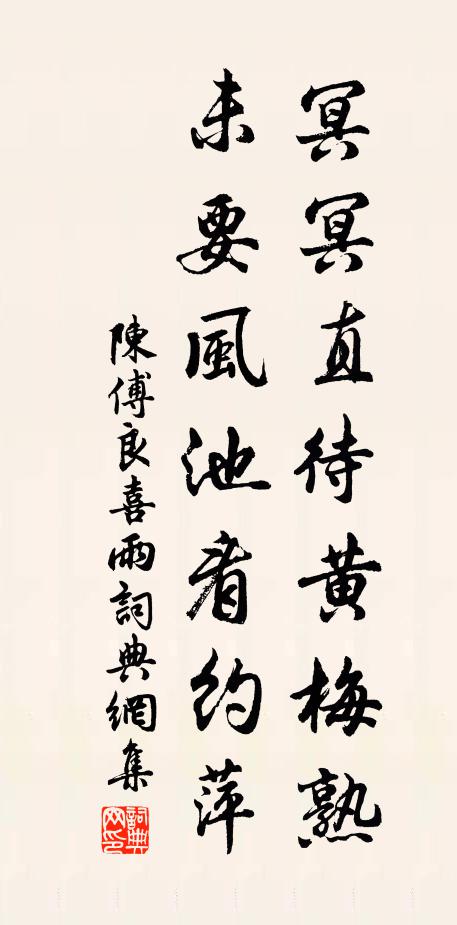 冥冥直待黄梅熟
未要風池看約萍
陳傅良喜雨詞典網集
詞典网印